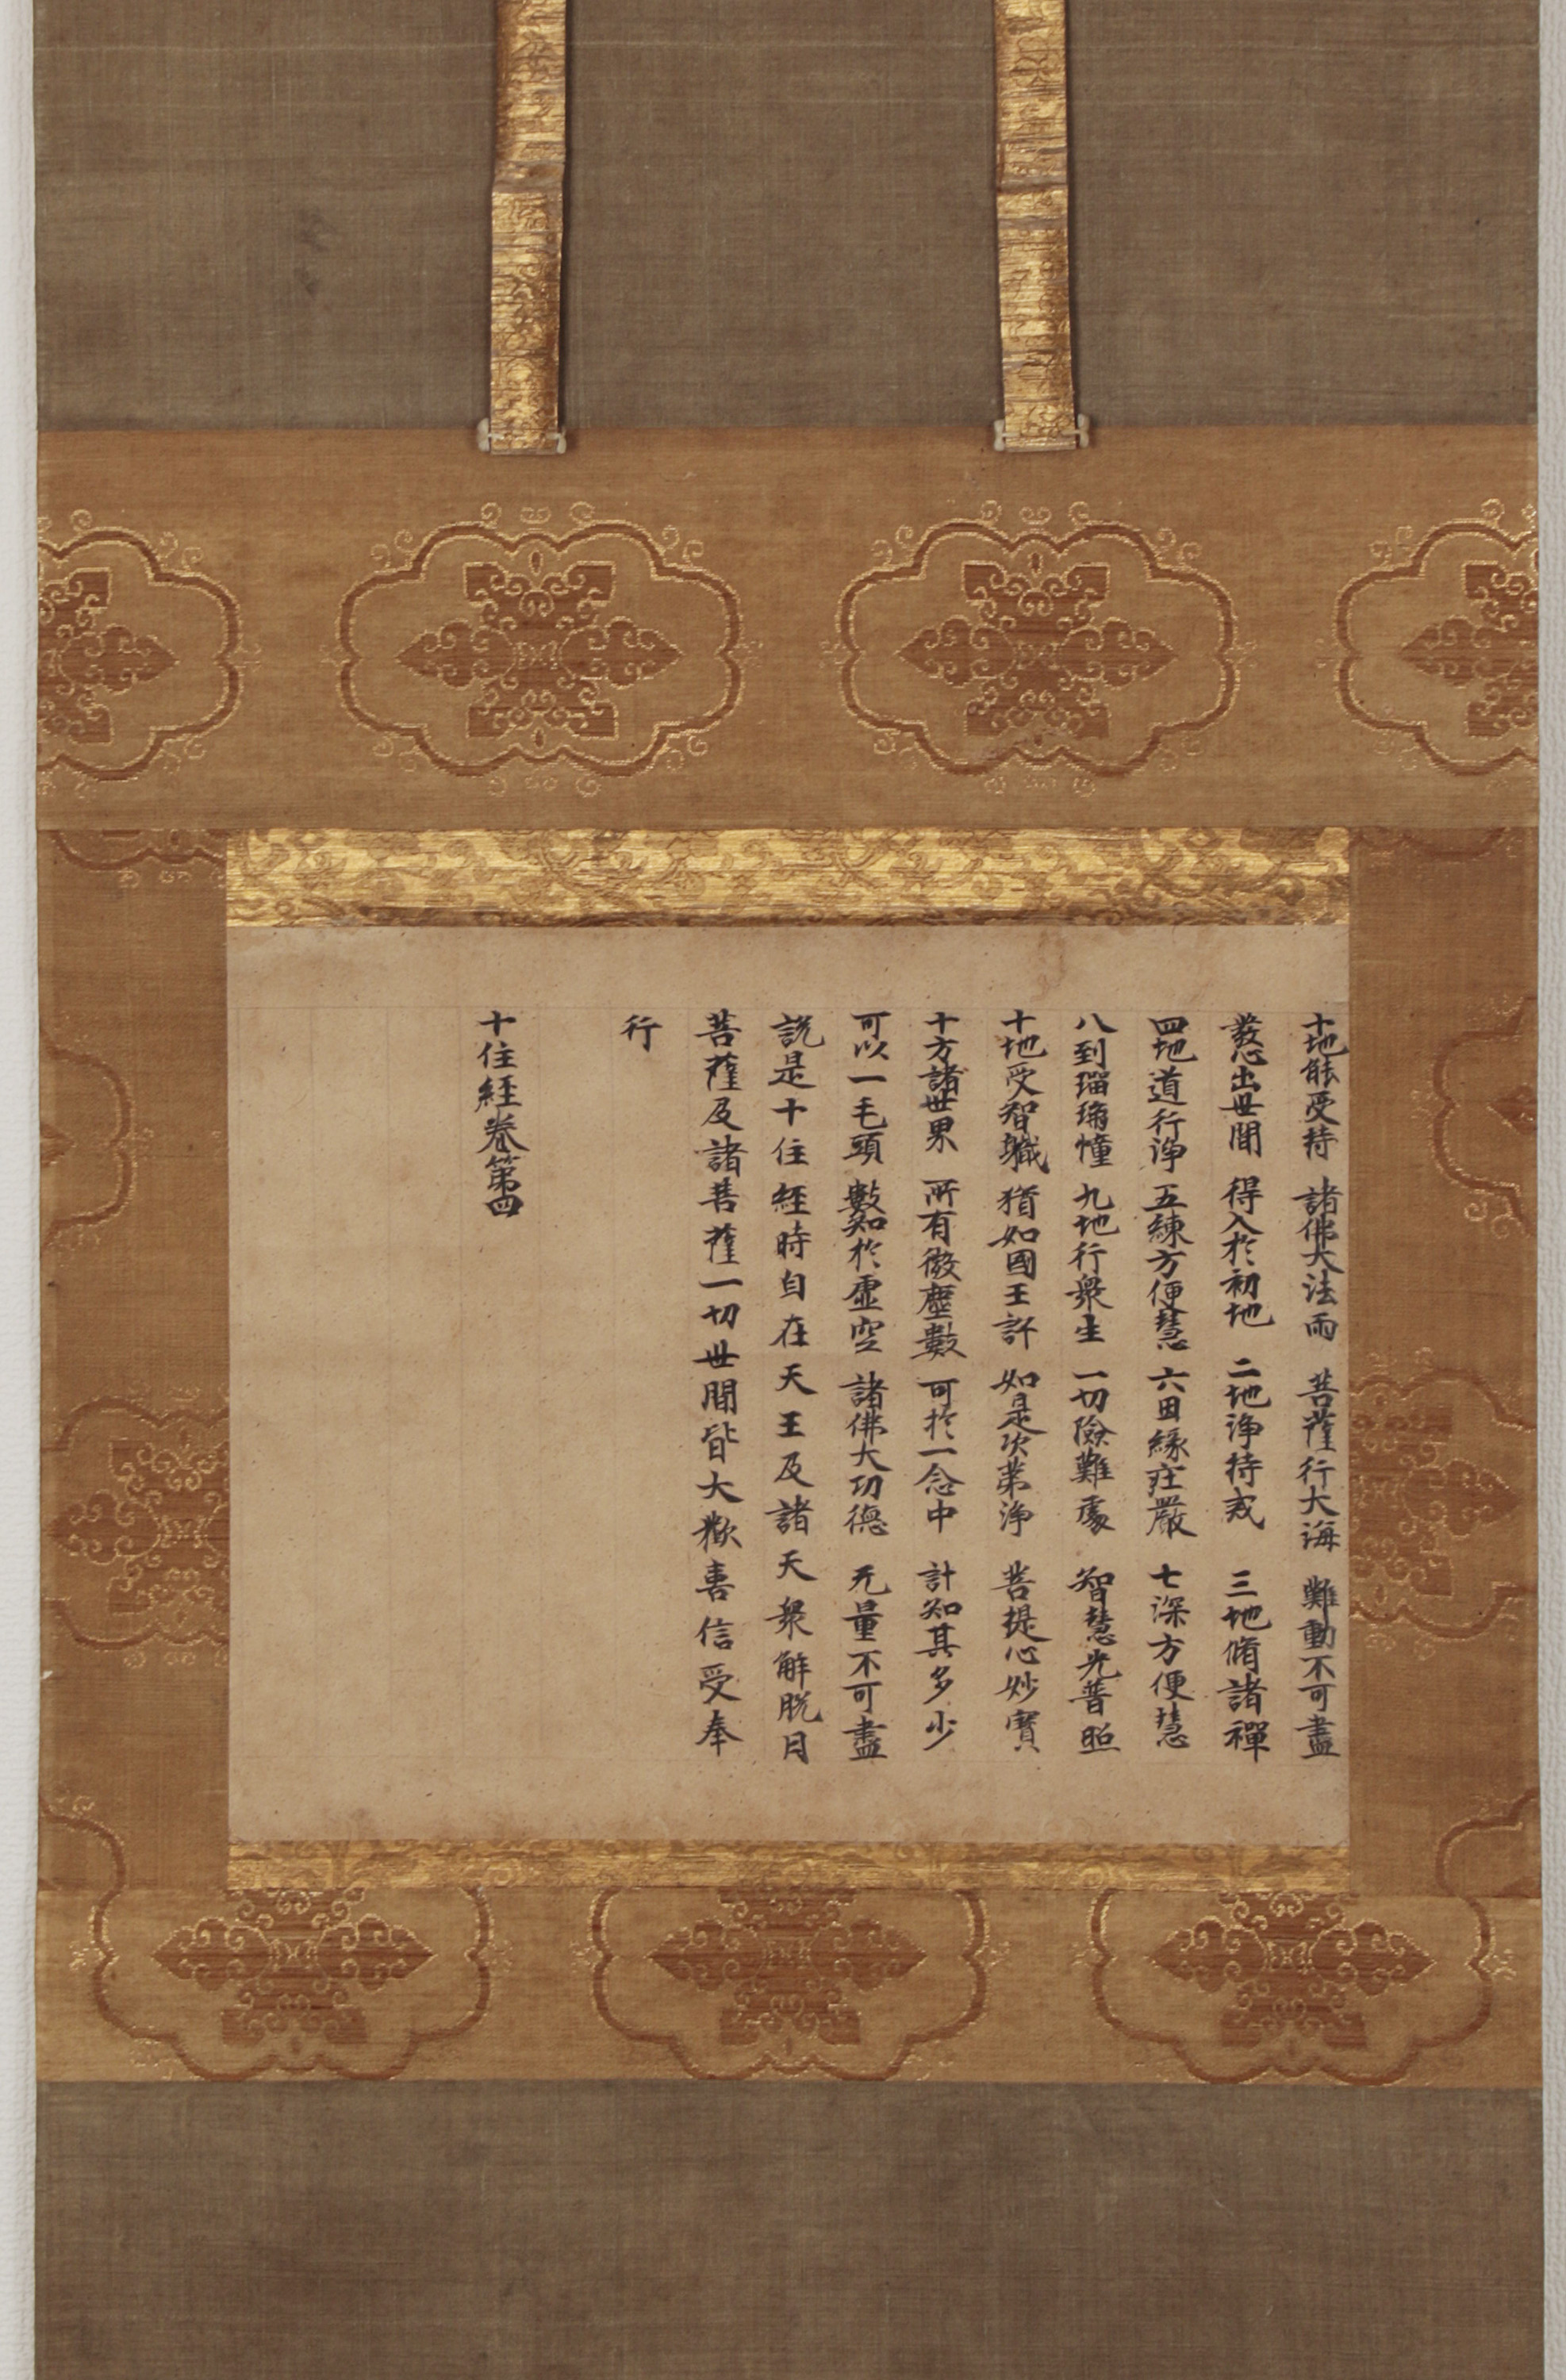 十地能受持 諸佛大法雨 菩薩行大海 難動不可盡
發心出世間 得入於初地 二地淨持戒 三地脩諸禪
四地道行淨 五練方便慧 六因緣莊嚴 七深方便慧
八到瑠璃幢 九地行衆生 一切險難處 智慧光普照
十地受智職 猶如國王許 如是次第淨 菩提心妙寶
十方諸世界 所有微塵數 可於一念中 計知其多少
可以一毛頭 數知於虛空 諸佛大功德 无量不可盡
說是十住經時自在天王及諸天衆解脫月
菩薩及諸菩薩一切世間皆大歡喜信受奉
行
十住經卷第四